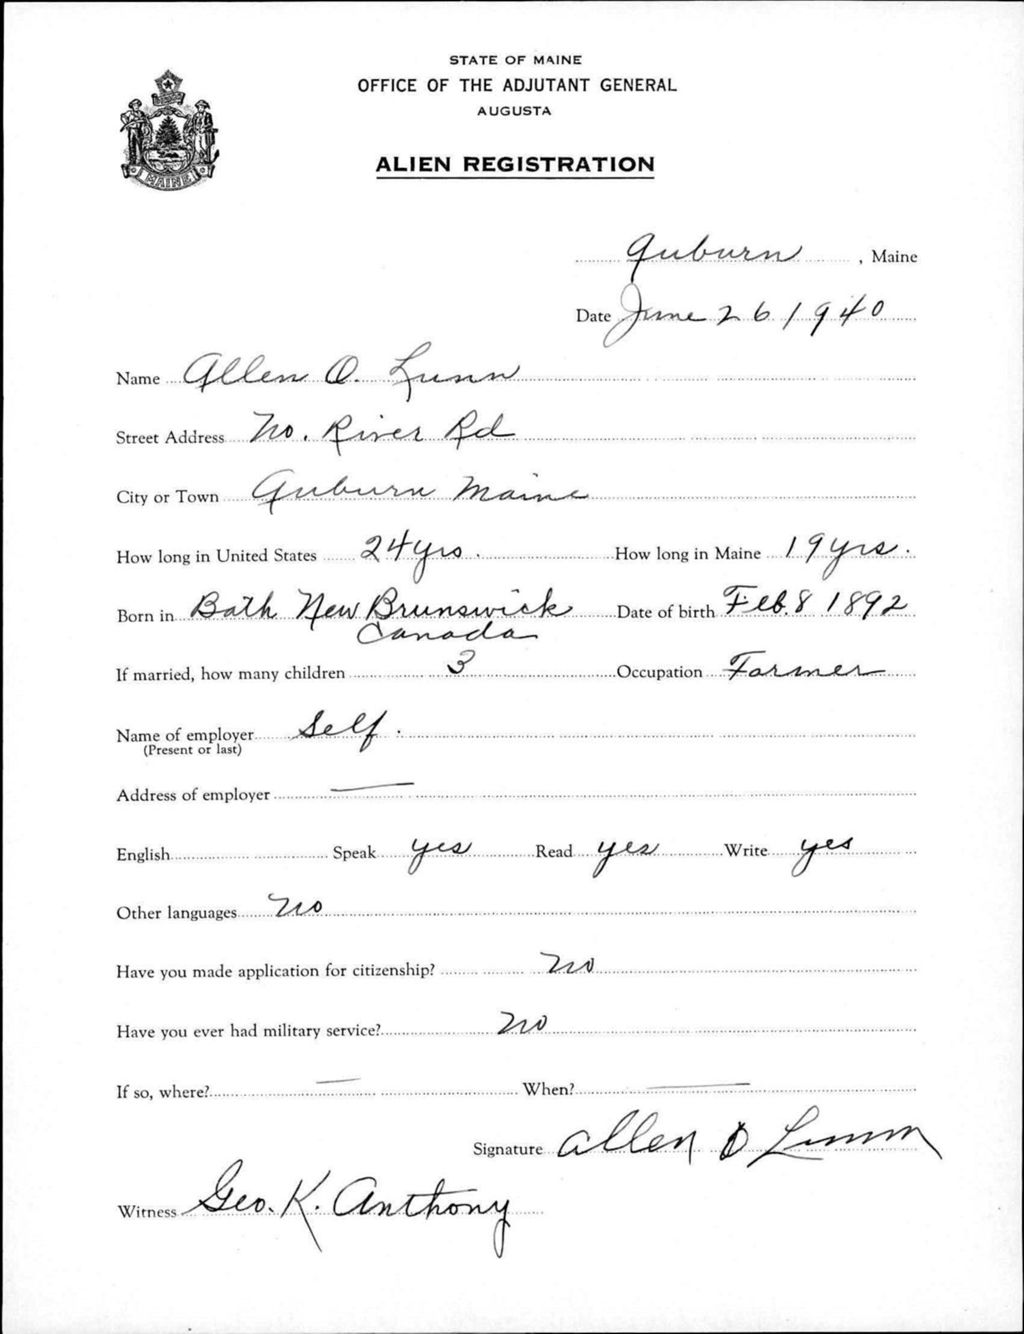 STATE OF MAINE
OFFICE OF THE ADJUTANT GENERAL
AUGUSTA
ALIEN REGISTRATION
MAINE
Auburn, Maine
Date June 26 1940
Name Allen O. Lunn
Street Address No. River Rd
City or Town Auburn Maine
How long in United States 24 yrs. How long in Maine 19 yrs.
Born in Bath New Brunswick Date of birth Feb. 8 1892
Canada
If married, how many children 3 Occupation Farmer
Name of employer Self.
(Present or last)
Address of employer —
English Speak yes Read yes Write yes
Other languages No
Have you made application for citizenship? No
Have you ever had military service? No
If so, where? — When? —
Signature Allen O Lunn
Witness Geo. K. Anthony